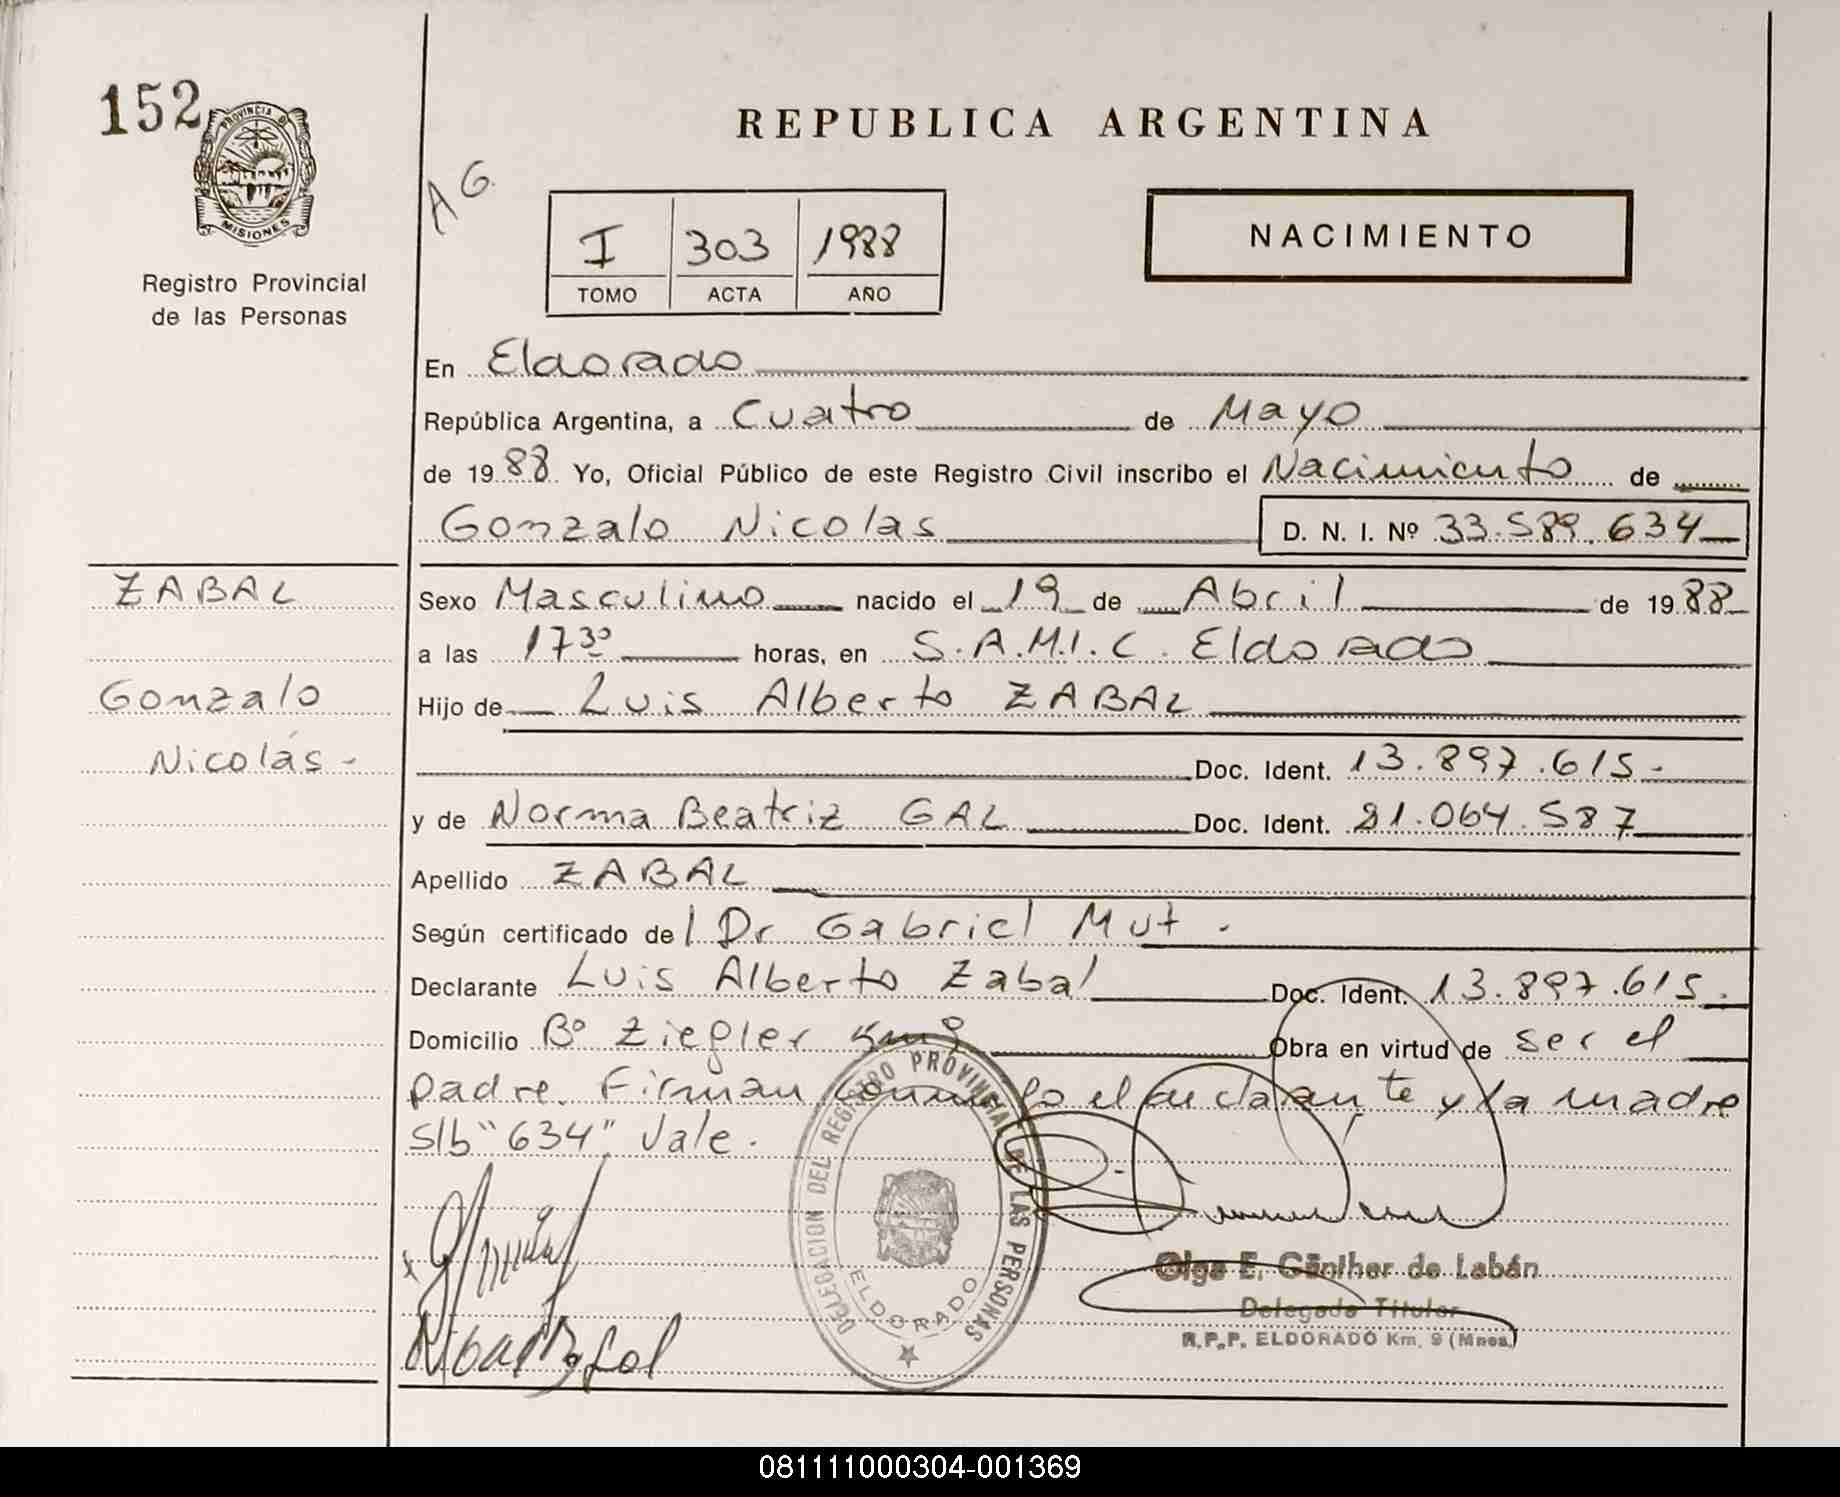 152
PROVINCIA DE
MISIONES
Registro Provincial
de las Personas
REPUBLICA ARGENTINA
A G.
I 303 1988
TOMO ACTA AÑO
NACIMIENTO
En Eldorado
República Argentina, a Cuatro de Mayo
de 1988 Yo, Oficial Público de este Registro Civil inscribo el Nacimiento de
Gonzalo Nicolas D. N. I. Nº 33.589.634
ZABAL
Gonzalo
Nicolás -
Sexo Masculino nacido el 19 de Abril de 1988
a las 17 30 horas, en S.A.M.I.C. Eldorado
Hijo de Luis Alberto ZABAL
Doc. Ident. 13.897.615.-
y de Norma Beatriz GAL Doc. Ident. 21.064.587
Apellido ZABAL
Según certificado de l Dr Gabriel Mut.
Declarante Luis Alberto Zabal Doc. Ident. 13.897.615.
Domicilio Bº Ziegler Km 9 Obra en virtud de ser el
padre. Firman conmigo el declarante y la madre
S/b "634" Vale.
DELEGACION DEL REGISTRO PROVINCIAL DE LAS PERSONAS
ELDORADO
Olga E. Günther de Labán
Delegada Titular
R.P.P. ELDORADO Km. 9 (Mnes.)
081111000304-001369